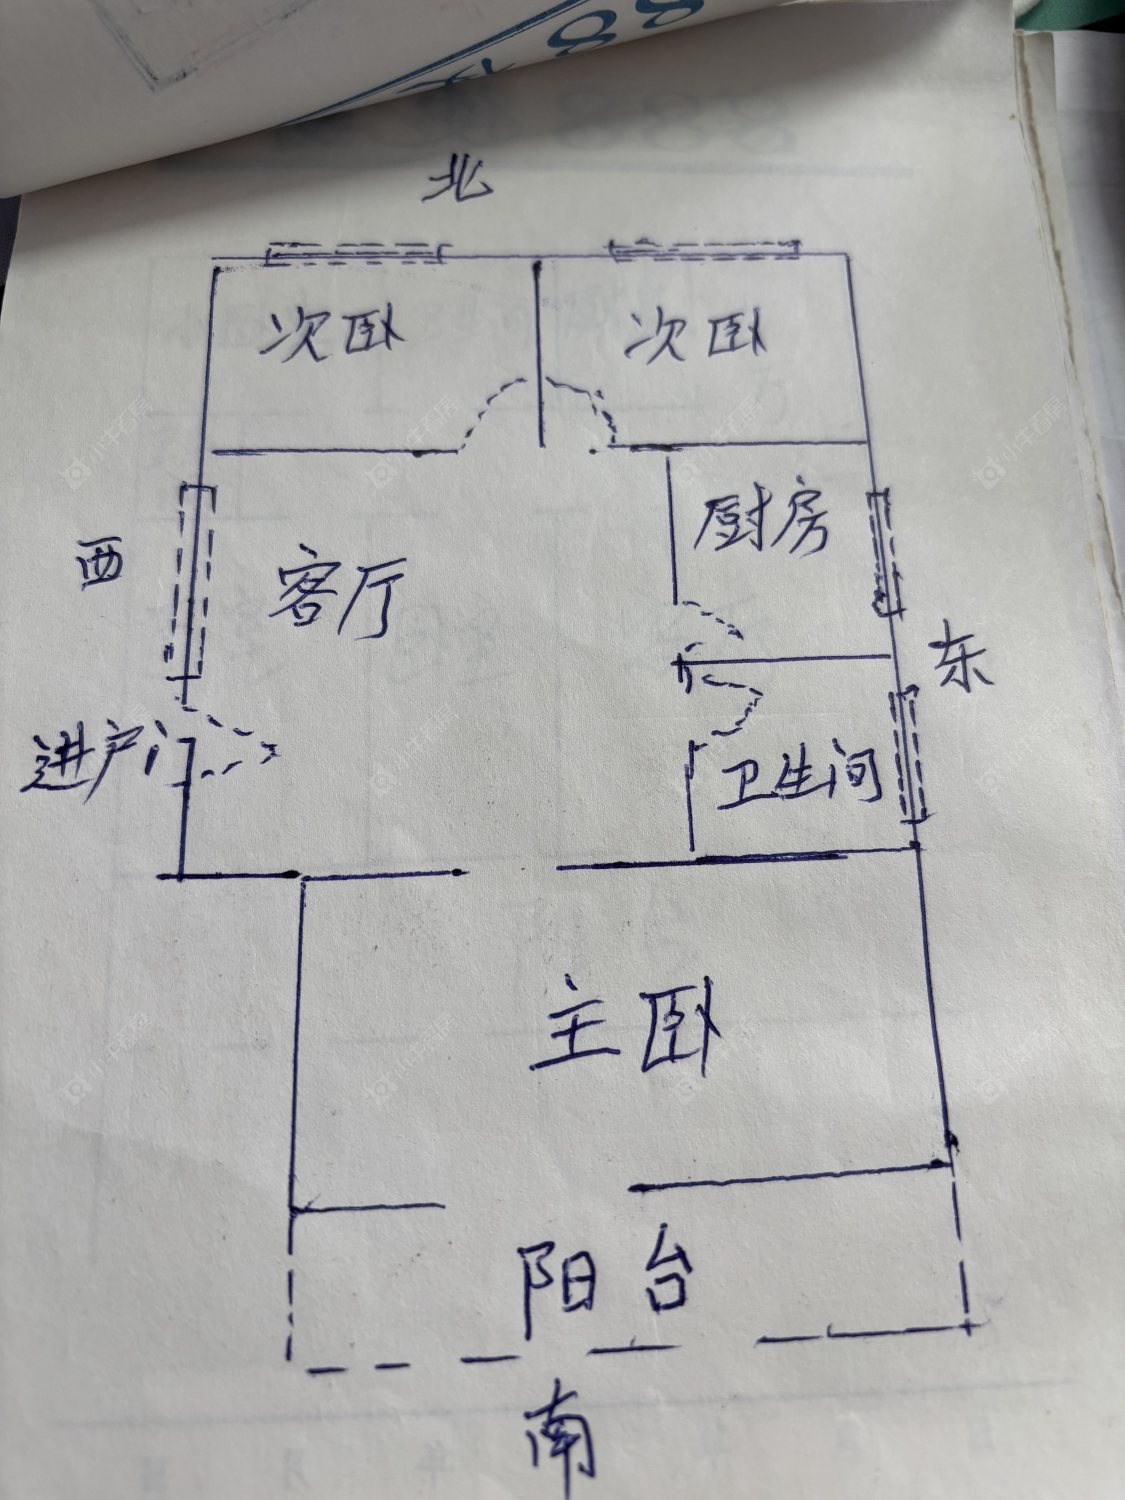 北
次卧 次卧
厨房
西 客厅
东
进户门
卫生间
主卧
阳台
南